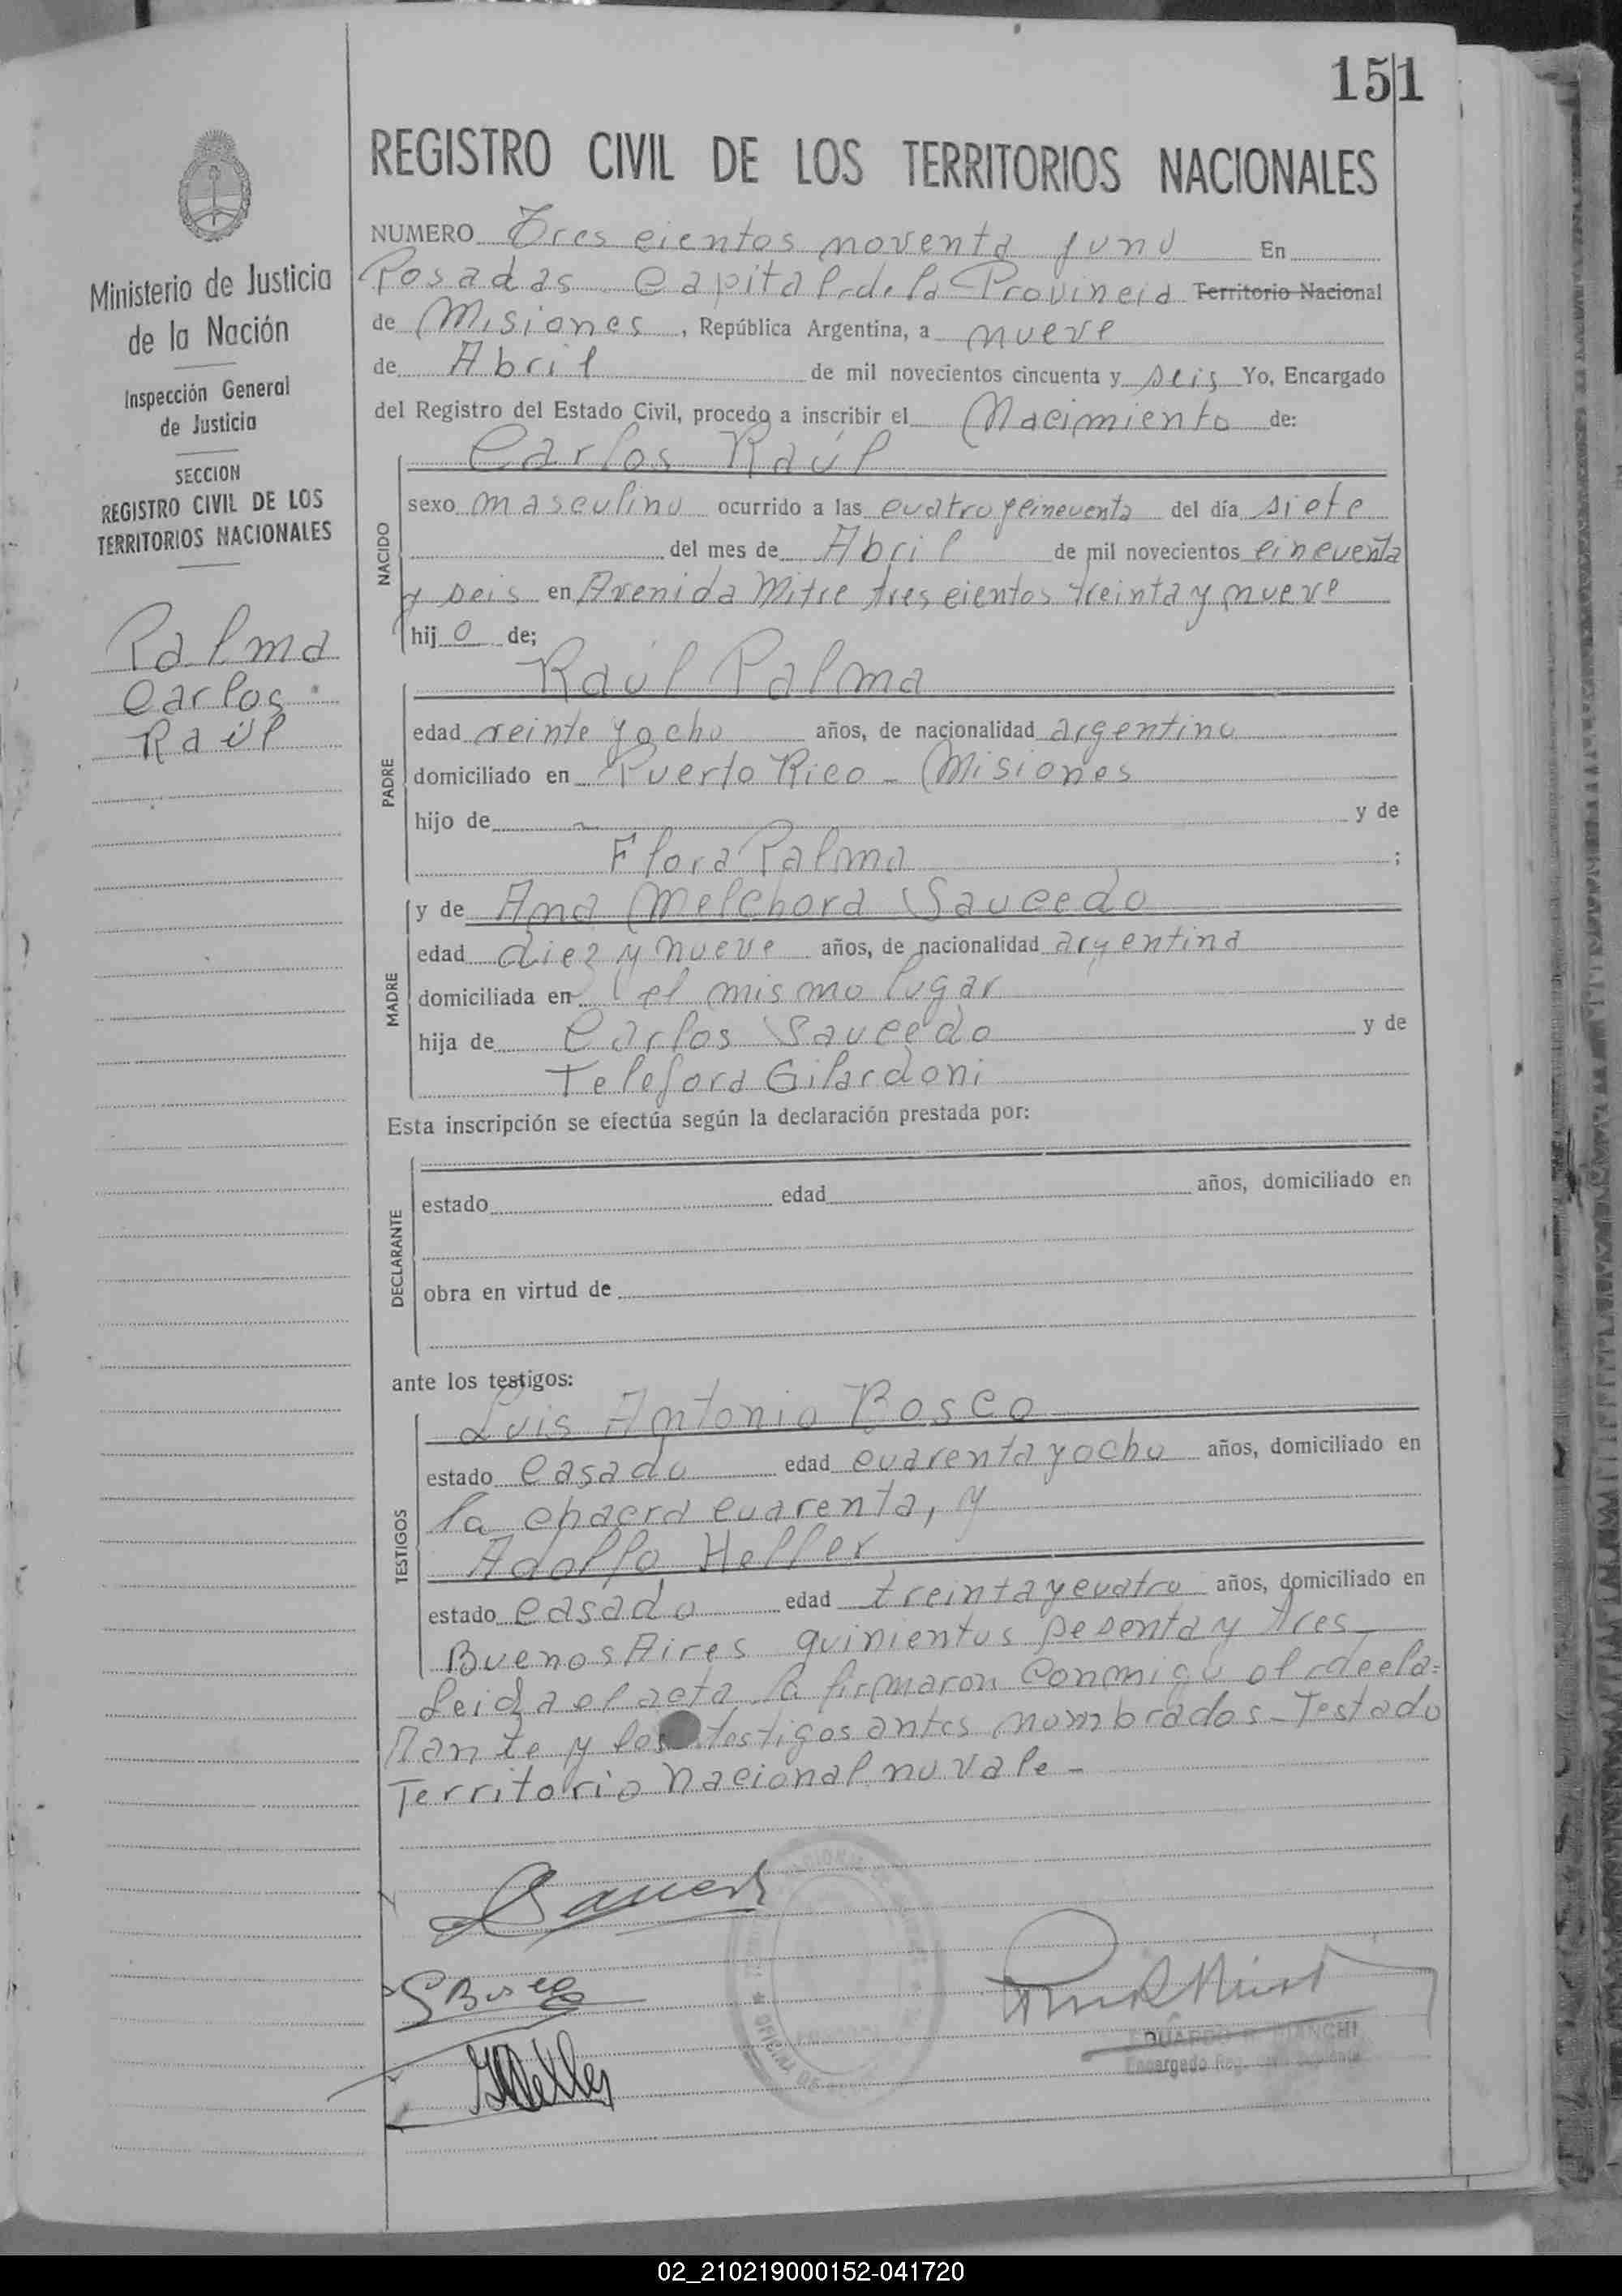 151
REGISTRO CIVIL DE LOS TERRITORIOS NACIONALES
Ministerio de Justicia
de la Nación
Inspección General
de Justicia
SECCION
REGISTRO CIVIL DE LOS
TERRITORIOS NACIONALES
Palma
Carlos
Raúl
NUMERO Tres cientos noventa y uno En
Posadas Capital de la Provincia Territorio Nacional
de Misiones, República Argentina, a nueve
de Abril de mil novecientos cincuenta y seis Yo, Encargado
del Registro del Estado Civil, procedo a inscribir el Nacimiento de:
Carlos Raúl
NACIDO
sexo masculino ocurrido a las cuatro y cincuenta del día siete
del mes de Abril de mil novecientos cincuenta
y seis en Avenida Mitre tres cientos treinta y nueve
hijo de;
Raúl Palma
PADRE
edad veinte y ocho años, de nacionalidad argentino
domiciliado en Puerto Rico - Misiones
hijo de y de
Flora Palma ;
MADRE
y de Ana Melchora Saucedo
edad diez y nueve años, de nacionalidad argentina
domiciliada en el mismo lugar
hija de Carlos Saucedo y de
Telefora Gilardoni
Esta inscripción se efectúa según la declaración prestada por:
DECLARANTE
estado edad años, domiciliado en
obra en virtud de
ante los testigos:
TESTIGOS
Luis Antonio Bosco
estado casado edad cuarenta y ocho años, domiciliado en
la chacra cuarenta, y
Adolfo Heller
estado casado edad treinta y cuatro años, domiciliado en
Buenos Aires quinientos sesenta y tres
Leida el acta la firmaron conmigo el decla=
rante y los testigos antes nombrados - Testado
Territorio Nacional no vale -
Bosco
Heller
OFICINA DE
EDUARDO BIANCHI
Encargado Reg.
02_210219000152-041720